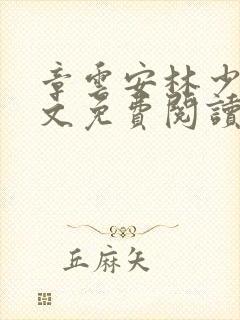 章雲安林少
文免費閱讀
丘麻矢